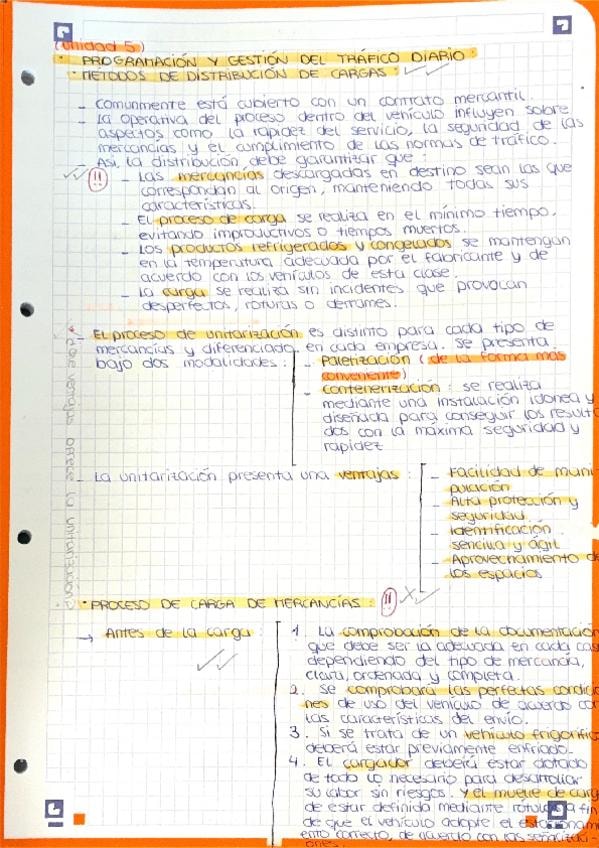 (Unidad 5)
· PROGRAMACIÓN Y GESTIÓN DEL TRÁFICO DIARIO:
· MÉTODOS DE DISTRIBUCIÓN DE CARGAS:
- Comunmente está cubierto con un contrato mercantil.
- La operativa del proceso dentro del vehículo influyen sobre
aspectos como la rapidez del servicio, la seguridad de las
mercancías y el cumplimiento de las normas de tráfico.
- Así, la distribución debe garantizar que:
!! - Las mercancías descargadas en destino sean las que
correspondan al origen, manteniendo todas sus
características.
- El proceso de carga se realiza en el mínimo tiempo,
evitando improductivos o tiempos muertos.
- Los productos refrigerados y congelados se mantengan
en la temperatura adecuada por el fabricante y de
acuerdo con los vehículos de esta clase.
- La carga se realiza sin incidentes que provocan
desperfectos, roturas o derrames.
- El proceso de unitarización es distinto para cada tipo de
mercancías y diferenciado en cada empresa. Se presenta
bajo dos modalidades:
- Paletización (de la forma más
conveniente)
- Contenerización: se realiza
mediante una instalación idónea y
diseñada para conseguir los result
dos con la máxima seguridad y
rapidez
¿Que ventajas ofrece la unitarización?
- La unitarización presenta una ventajas:
- Facilidad de mani-
pulación
- Alta protección y
seguridad
- Identificación
sencilla y ágil
- Aprovechamiento de
los espacios
· PROCESO DE CARGA DE MERCANCÍAS: !!
→ Antes de la carga:
1. La comprobación de la documentación
que debe ser la adecuada en cada cas
dependiendo del tipo de mercancía,
clara, ordenada y completa.
2. Se comprobará las perfectas condicio
nes de uso del vehículo de acuerdo con
las características del envío.
3. Si se trata de un vehículo frigorífic
deberá estar previamente enfriado.
4. El cargador deberá estar dotado
de todo lo necesario para desarrollar
su labor sin riesgos. Y el muelle de carg
de estar definido mediante rótulos a fin
de que el vehículo adopte el estacionam
ento correcto, de acuerdo con las señalizaci-
ones.